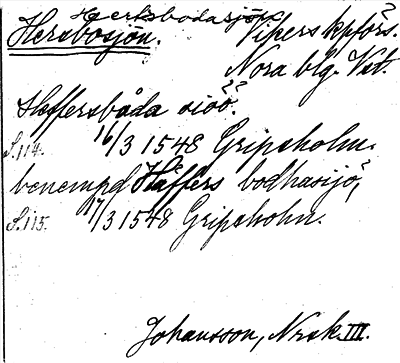 Herksbodasjön?
Hersbosjön. Vikers kpförs.
Nora blg. Vst.
Haffersbåda siöö.
S.114. 16/3 1548 Gripsholm.
benempd Häffers bodhasijö,
S.115. 17/3 1548 Gripsholm.
Johansson, Nrsk III.